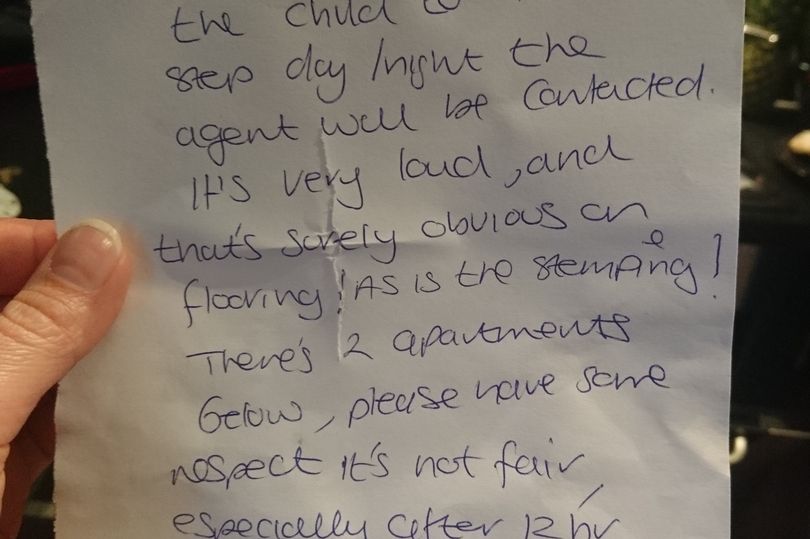 the child to
step day/night the
agent will be contacted.
It's very loud, and
that's surely obvious on
flooring! As is the stomping!
There's 2 apartments
below, please have some
respect it's not fair,
especially after 12hr